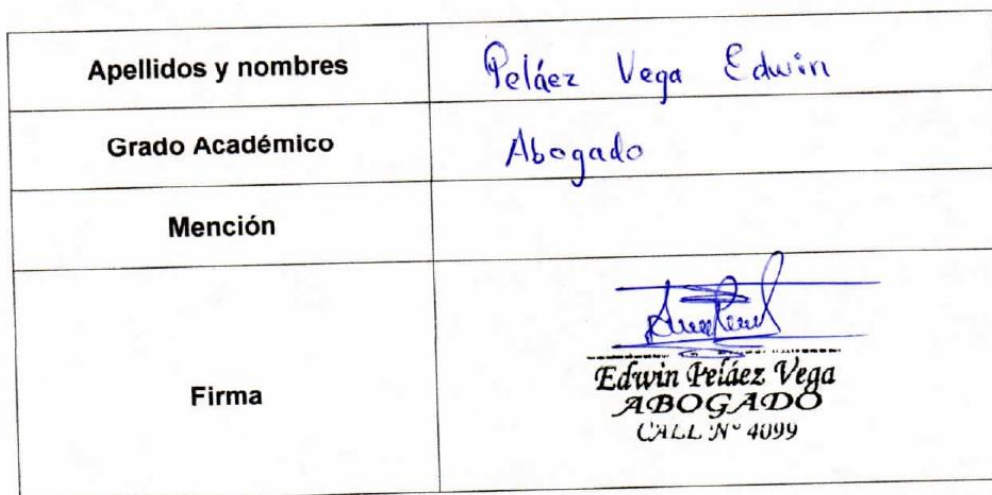 Apellidos y nombres Peláez Vega Edwin
Grado Académico Abogado
Mención
Firma
Edwin Peláez Vega
ABOGADO
CALL N° 4099